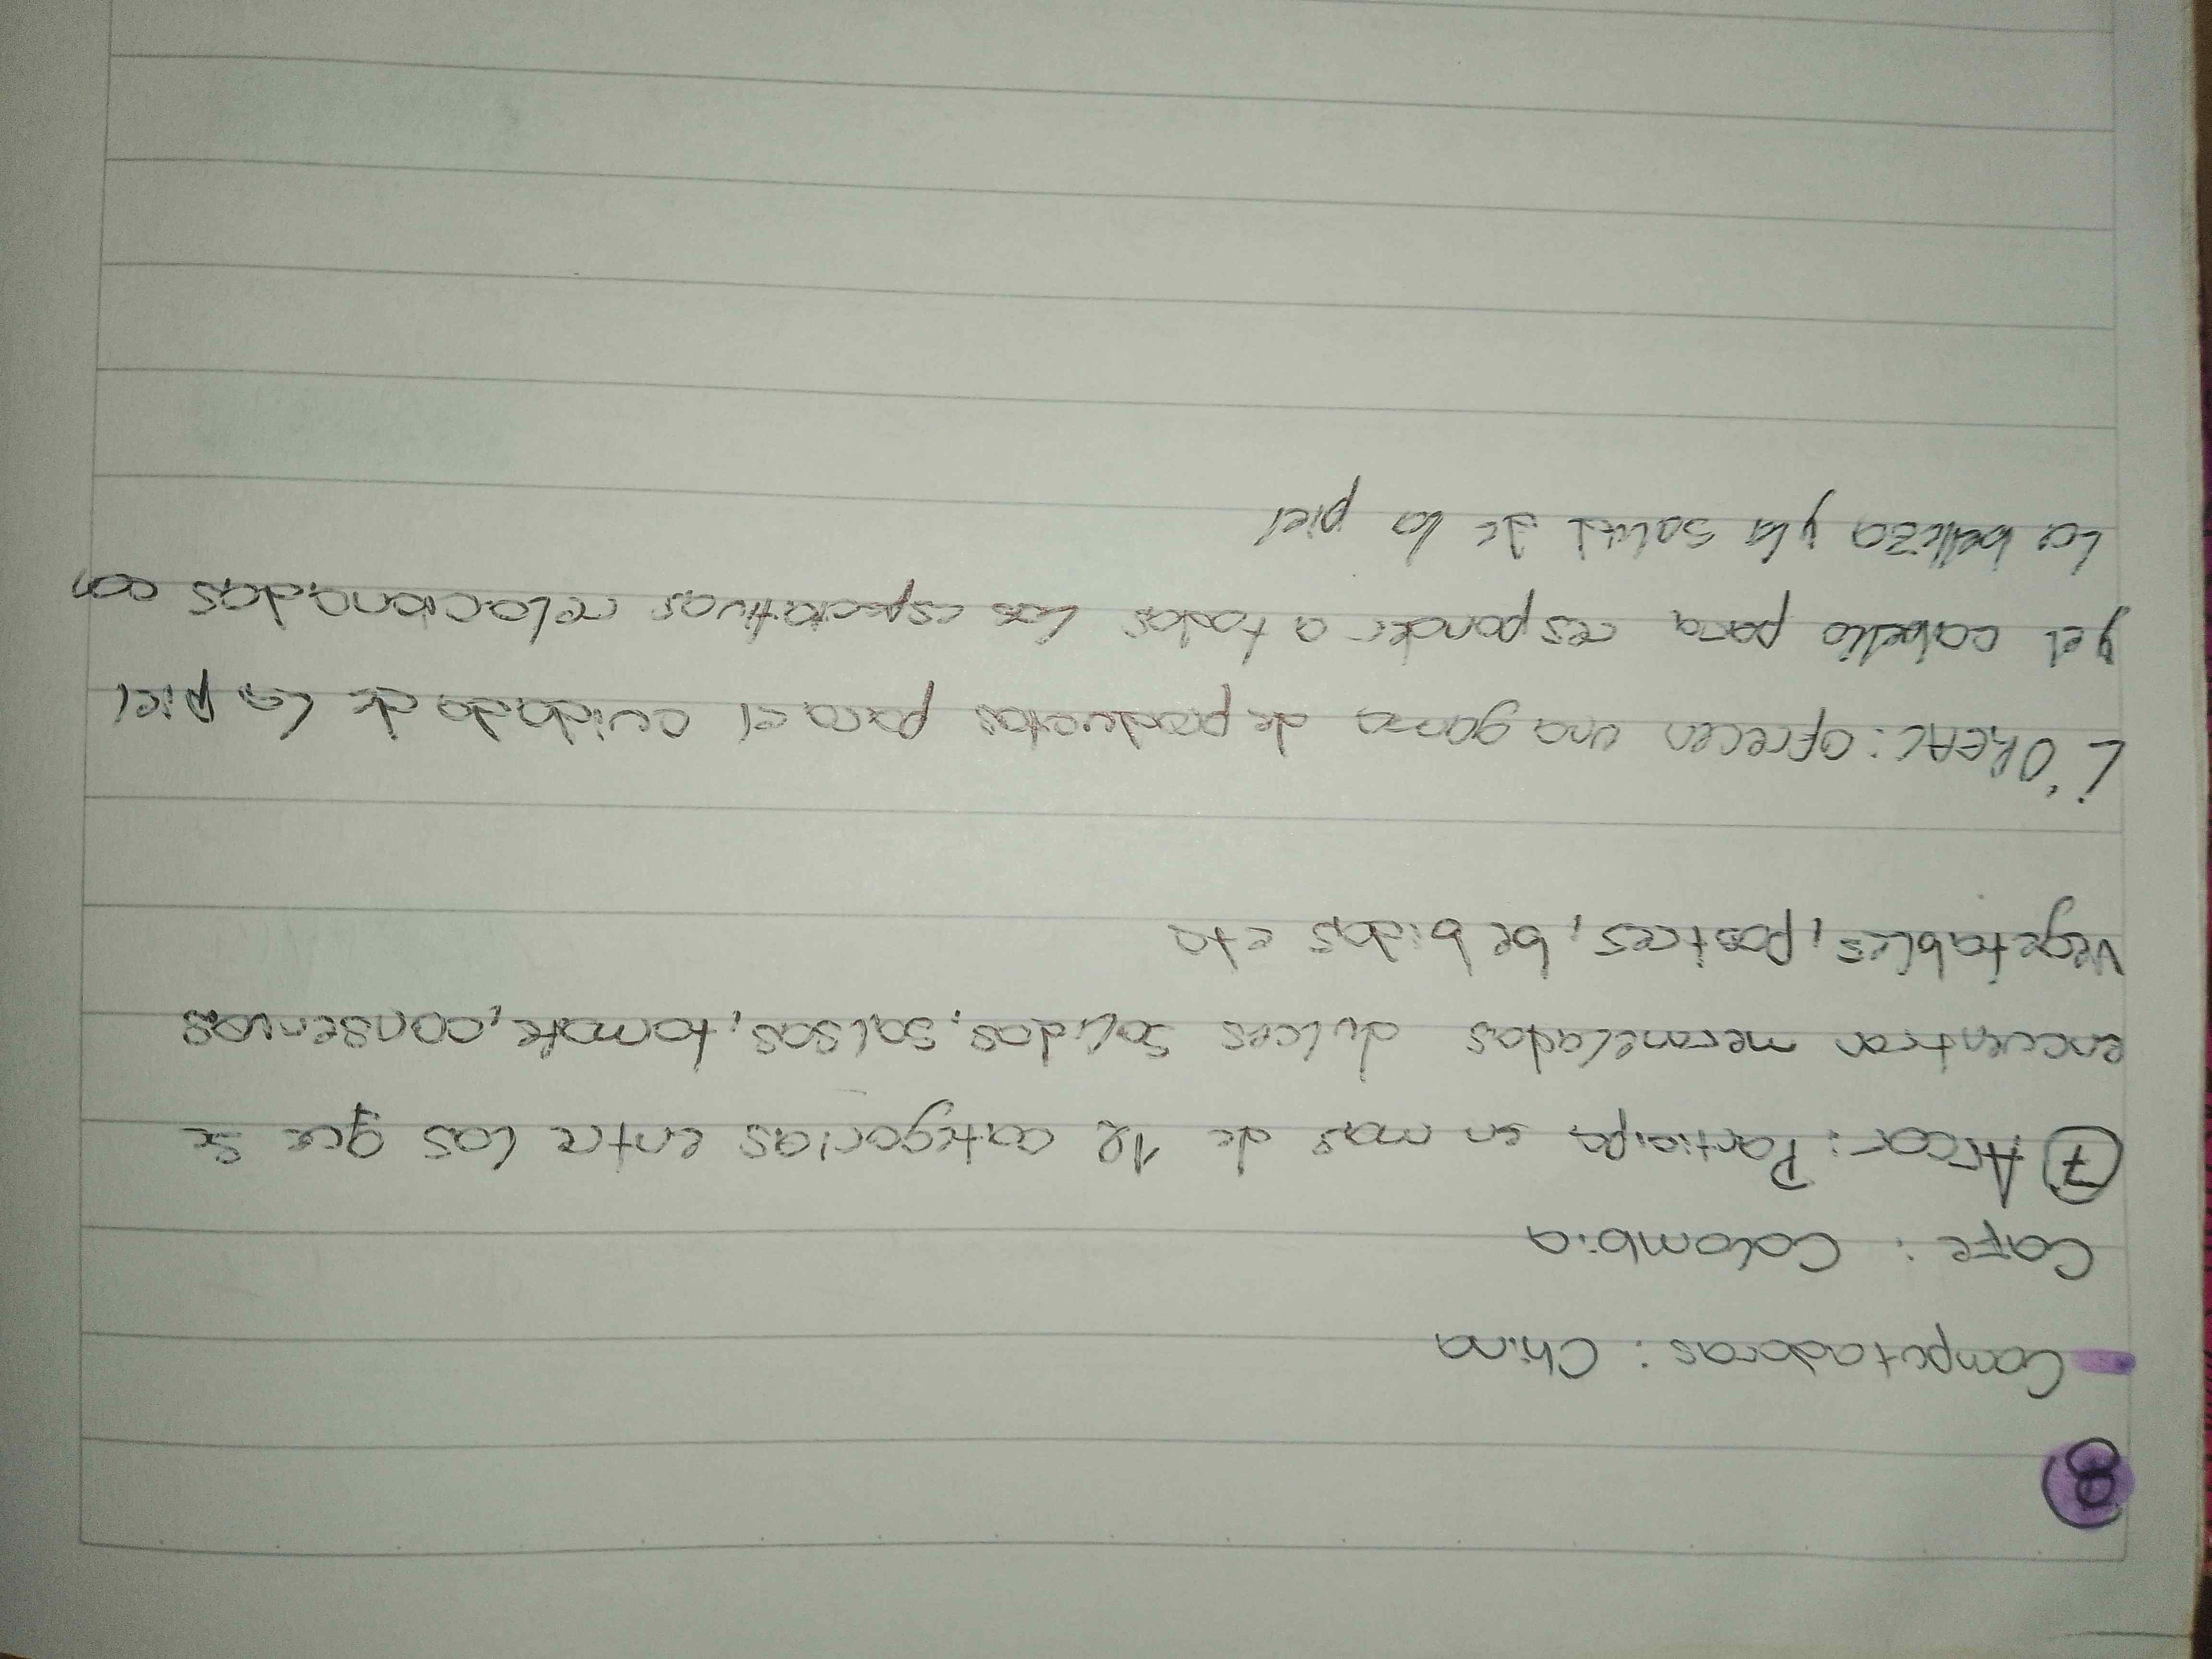 8
- Computadoras: China
Cafe: Colombia
7 Arcor: Participa en mas de 12 categorias entre las que se
encuentran mermeladas dulces solidos, salsas, tomate, conservas
vegetables, postres, bebidas eta
L'OREAL: ofrecen una gama de productos para el cuidado de la piel
y el cabello para responder a todas las espectativas relacionadas con
la belleza y la salud de la piel